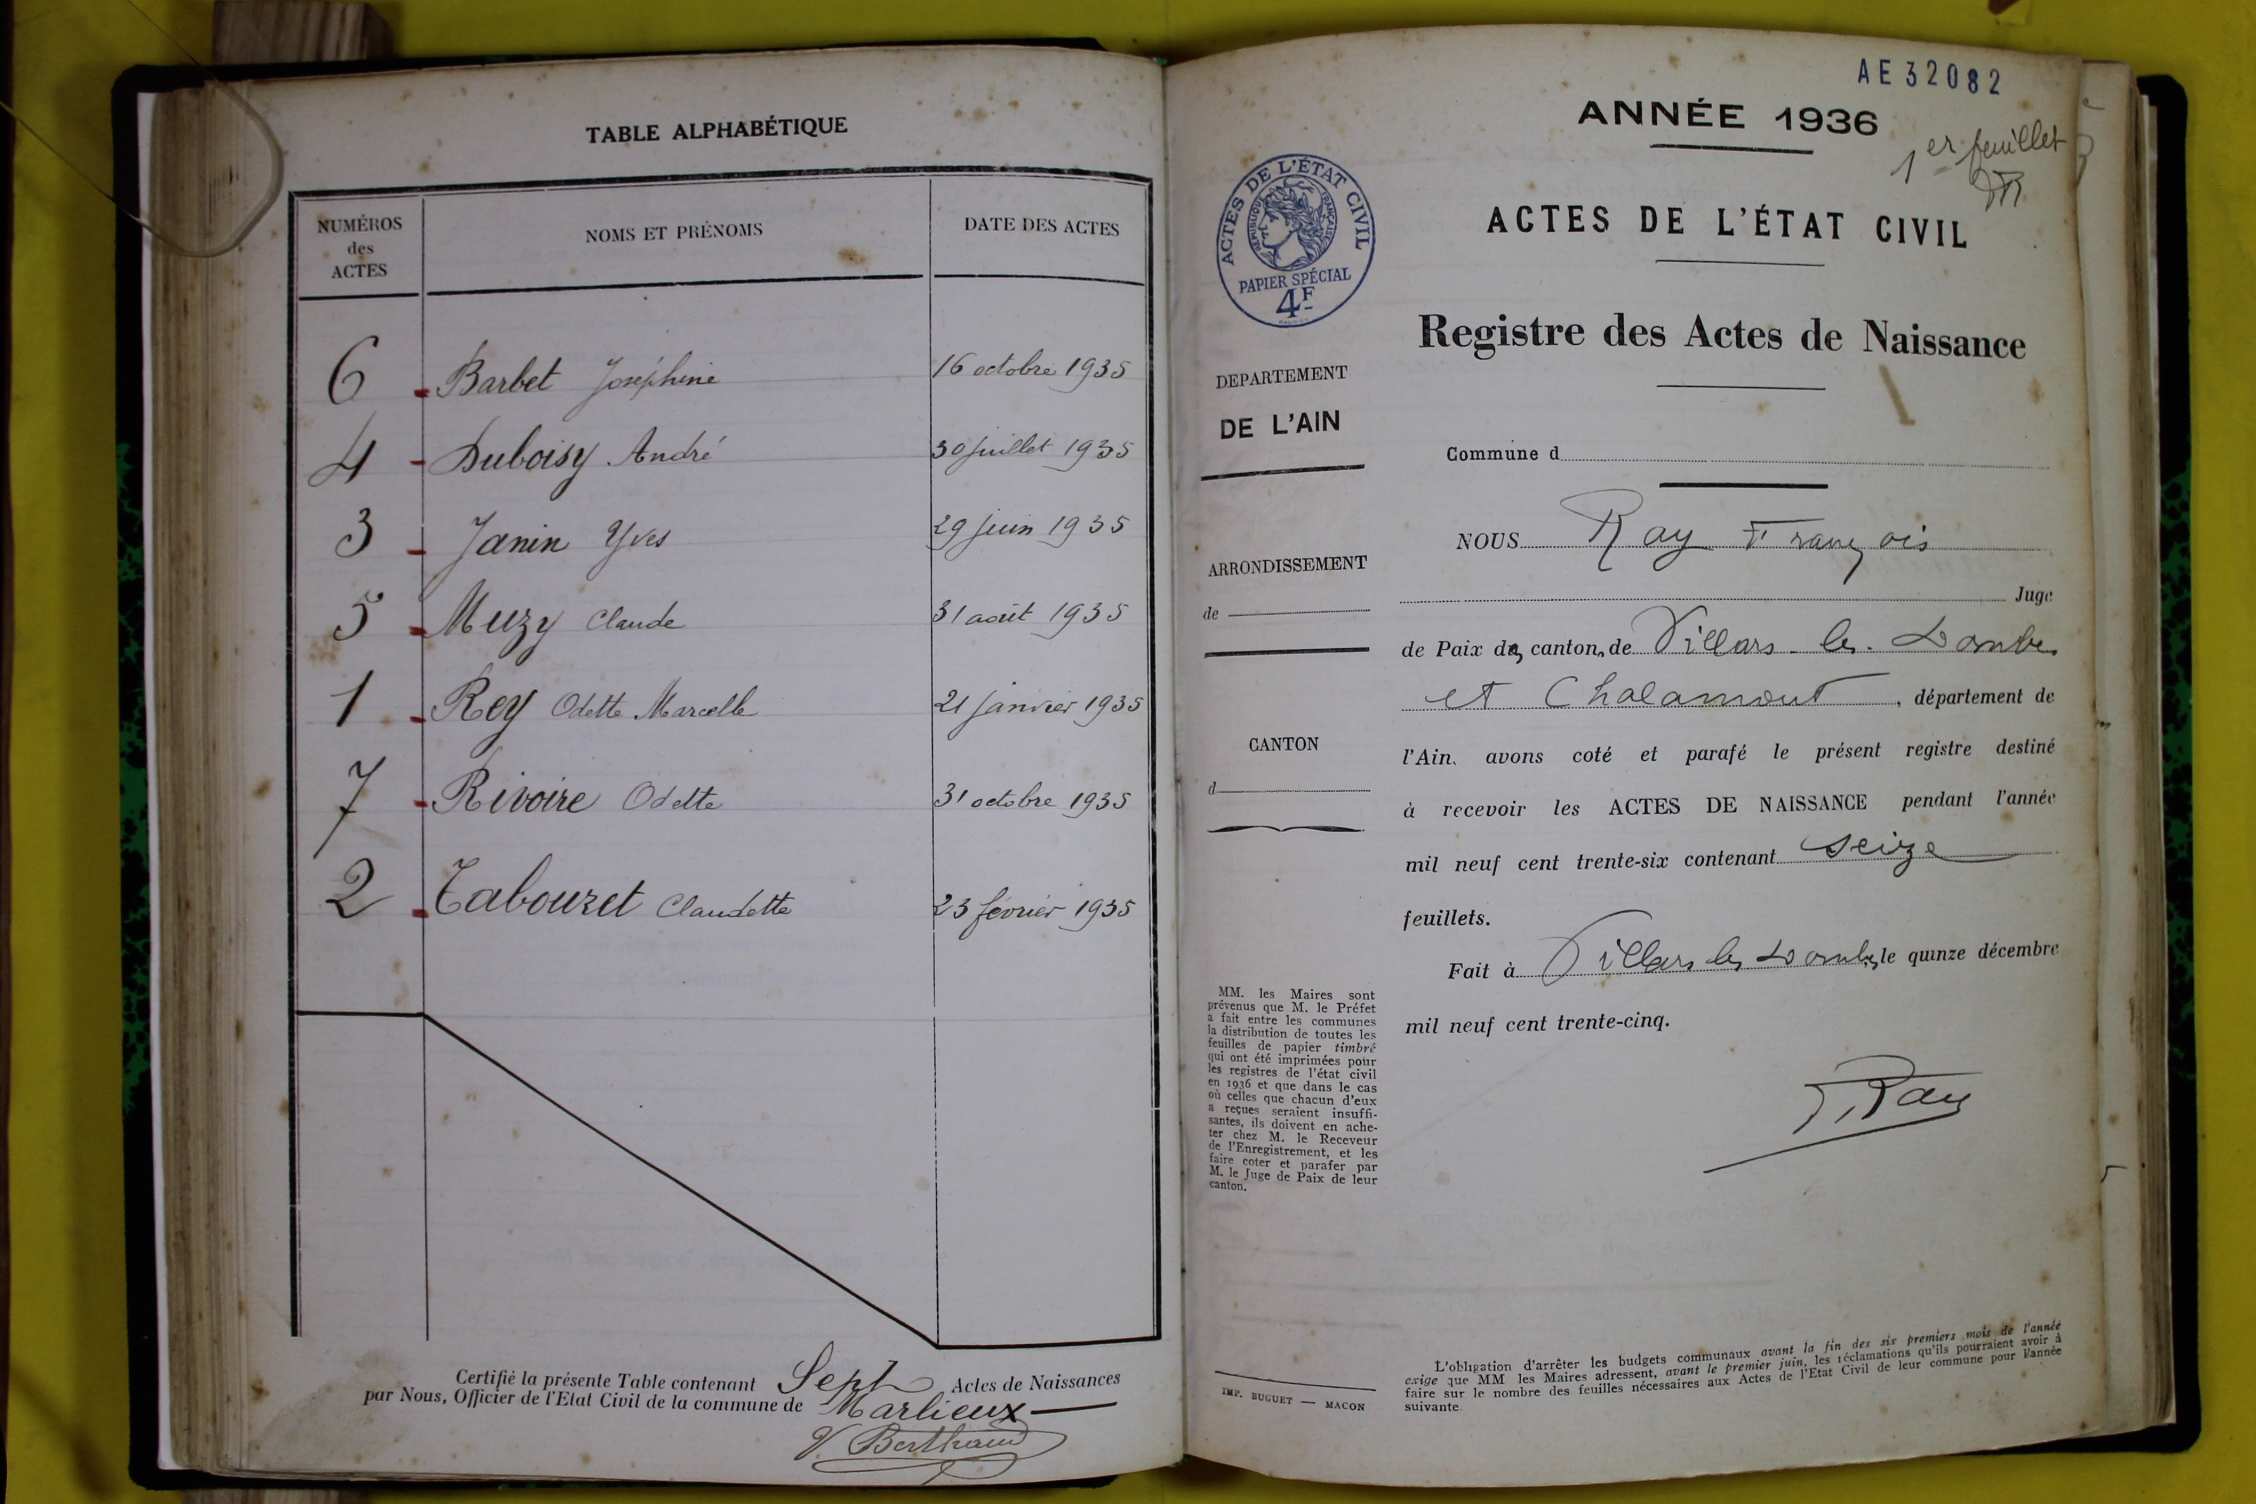 TABLE ALPHABÉTIQUE
NUMÉROS
des
ACTES
NOMS ET PRÉNOMS
DATE DES ACTES
6 Barbet Joséphine 16 octobre 1935
4 Duboisy André 30 juillet 1935
3 Janin Yves 29 juin 1935
5 Muzy Claude 31 août 1935
1 Rey Odette Marcelle 21 janvier 1935
7 Rivoire Odette 31 octobre 1935
2 Tabouret Claudette 23 février 1935
Certifié la présente Table contenant Sept Actes de Naissances
par Nous, Officier de l'Etat Civil de la commune de Marlieux
V. Berthaud
AE32082
ANNÉE 1936
1er feuillet
ACTES DE L'ÉTAT CIVIL
RÉPUBLIQUE FRANÇAISE
PAPIER SPÉCIAL
4F
ACTES DE L'ÉTAT CIVIL
Registre des Actes de Naissance
DEPARTEMENT
DE L'AIN
ARRONDISSEMENT
de
CANTON
d
MM. les Maires sont
prévenus que M. le Préfet
a fait entre les communes
la distribution de toutes les
feuilles de papier timbré
qui ont été imprimées pour
les registres de l'état civil
en 1936 et que dans le cas
où celles que chacun d'eux
a reçues seraient insuffi-
santes, ils doivent en ache-
ter chez M. le Receveur
de l'Enregistrement, et les
faire coter et parafer par
M. le Juge de Paix de leur
canton.
IMP. BUGUET — MACON
Commune d
NOUS Ray François
Juge
de Paix des cantons de Villars-les-Dombes
et Chalamont, département de
l'Ain, avons coté et parafé le présent registre destiné
à recevoir les ACTES DE NAISSANCE pendant l'année
mil neuf cent trente-six contenant seize
feuillets.
Fait à Villars les Dombes, le quinze décembre
mil neuf cent trente-cinq.
F. Ray
L'obligation d'arrêter les budgets communaux avant la fin des six premiers mois de l'année
exige que MM les Maires adressent, avant le premier juin, les réclamations qu'ils pourraient avoir à
faire sur le nombre des feuilles nécessaires aux Actes de l'Etat Civil de leur commune pour l'année
suivante